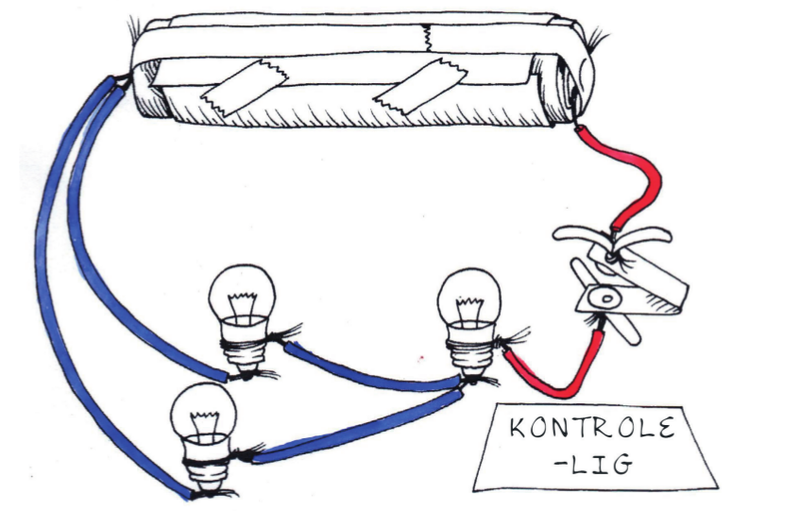 KONTROLE
-LIG